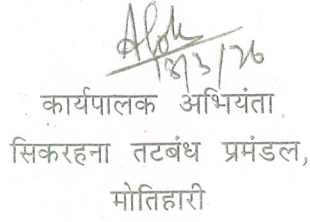 Alok
18/3/26
कार्यपालक अभियंता
सिकरहना तटबंध प्रमंडल,
मोतिहारी